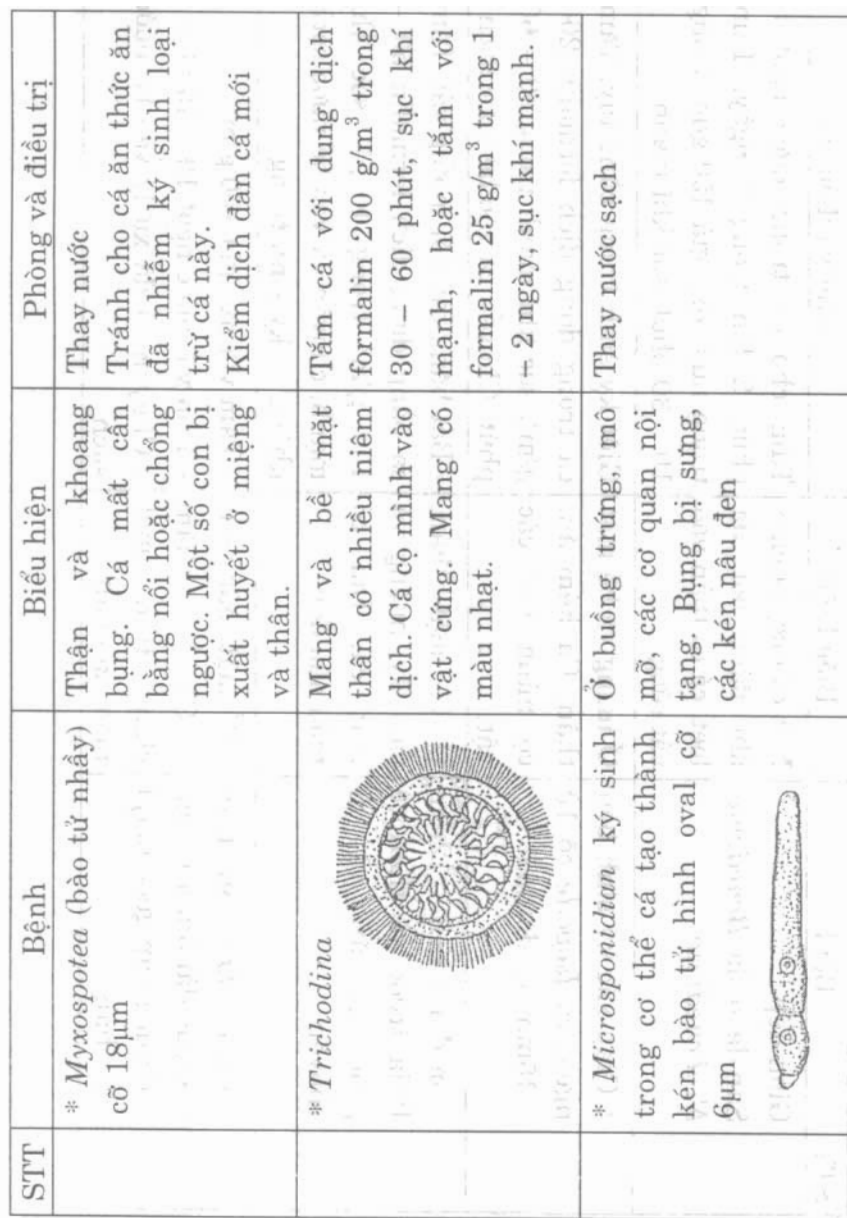 STT
Bệnh
Biểu hiện
Phòng và điều trị
* Myxospotea (bào tử nhầy)
cỡ 18μm
Thận và khoang
bụng. Cá mất cân
bằng nổi hoặc chổng
ngược. Một số con bị
xuất huyết ở miệng
và thân.
Thay nước
Tránh cho cá ăn thức ăn
đã nhiễm ký sinh loại
trừ cá này.
Kiểm dịch đàn cá mới
* Trichodina
Mang và bề mặt
thân có nhiều niêm
dịch. Cá cọ mình vào
vật cứng. Mang có
màu nhạt.
Tắm cá với dung dịch
formalin 200 g/m³ trong
30 – 60 phút, sục khí
mạnh, hoặc tắm với
formalin 25 g/m³ trong 1
– 2 ngày, sục khí mạnh.
* Microsponidian ký sinh
trong cơ thể cá tạo thành
kén bào tử hình oval cỡ
6μm
Ở buồng trứng, mô
mỡ, các cơ quan nội
tạng. Bụng bị sưng,
các kén nâu đen
Thay nước sạch